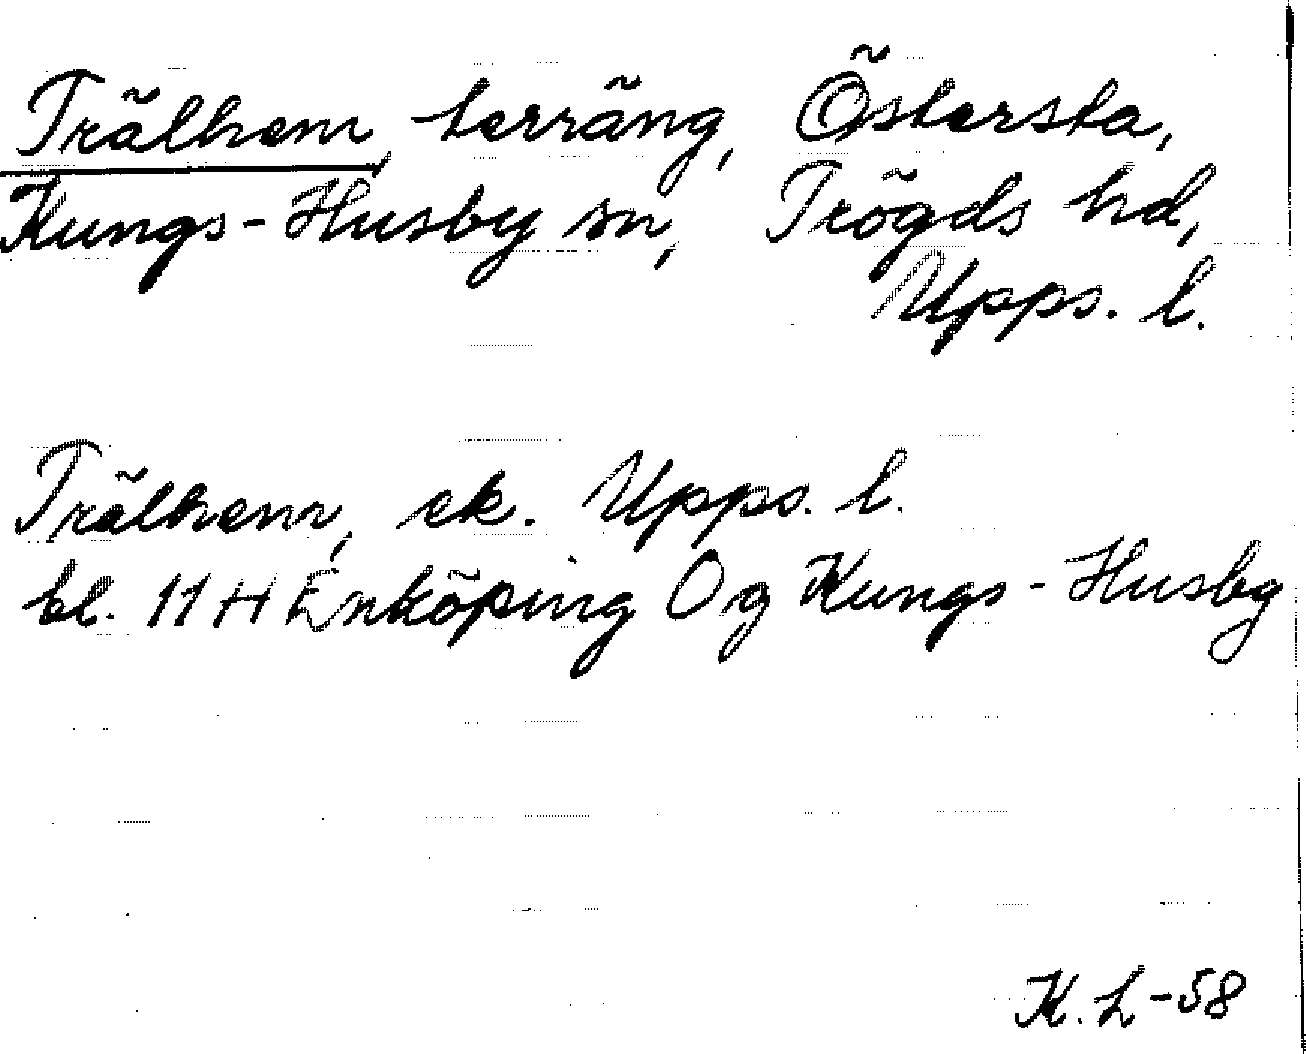 Trälhem, terräng, Östersta,
Kungs-Husby sn, Trögds hd,
Upps. l.
Trälhem, ek. Upps. l.
bl. 11 H Enköping Og Kungs-Husby
K. L-58